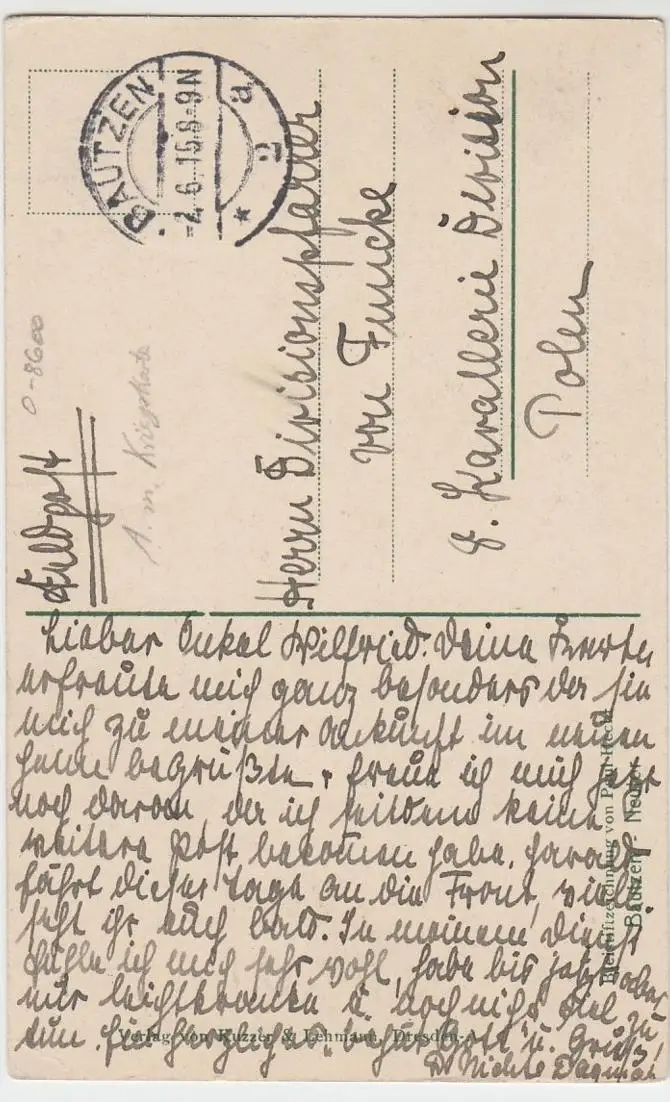 BAUTZEN
-2.6.16.8-9N
a
2
*
Feldpost
0-8600
1. m. Kriegskarte
Herrn Divisionspfarrer
von Funcke
8. Kavallerie Division
Polen
Lieber Onkel Wilfried. Deine Karte
erfreute mich ganz besonders da sie
mich zu meiner Ankunft im neuen
Heim begrüßte, freue ich mich sehr
noch daran, da ich seitdem keine
weitere Post bekommen habe. Harald
fährt dieser Tage an die Front, viell.
seht ihr euch bald. In meinem Dienst
fühle ich mich sehr wohl, habe bis jetzt aber
nur leichtkranke u. noch nicht viel zu
tun. Ein herzliches „behüt Gott“ u. Gruß!
D. Nichte Dagmar
Bleistiftzeichnung von Paul
Bautzen -
Verlag von Kuzzer & Lehmann, Dresden-A.